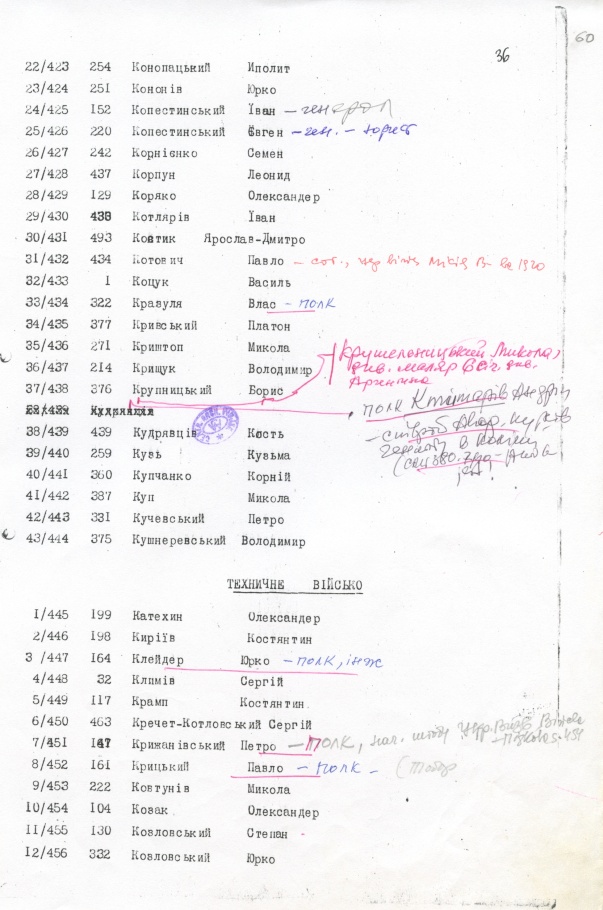 60
36
22/423 254 Конопацький Иполит
23/424 251 Кононів Юрко
24/425 152 Копестинський Їван — генерал
25/426 220 Копестинський Євген — ген. — юрист
26/427 242 Корнієнко Семен
27/428 437 Корпун Леонид
28/429 129 Коряко Олександер
29/430 433 Котлярів Їван
30/431 493 Ковтик Ярослав-Дмитро
31/432 434 Котович Павло — сот., 1920
32/433 1 Коцук Василь
33/434 322 Кравуля Влас — полк
34/435 377 Кривський Платон
35/436 271 Криштоп Микола
Крушельницький Микола,
36/437 214 Крищук Володимир
див. маляр див.
Аргентина
37/438 376 Крупницький Борис
полк Андрій
Кудрявців
38/439 439 Кудрявців Кость
39/440 259 Кувь Кузьма
в
40/441 360 Купчанко Корній
41/442 387 Куп Микола
42/443 331 Кучевський Петро
43/444 375 Кушнеревський Володимир
ТЕХНИЧНЕ ВІЙСЬКО
1/445 199 Катехин Олександер
2/446 198 Киріїв Костянтин
3 /447 164 Клейдер Юрко — полк, інж
4/448 32 Климів Сергій
5/449 117 Крамп Костянтин.
6/450 463 Кречет-Котловський Сергій
7/451 147 Крижанівський Петро — полк, нач.
8/452 161 Крицький Павло — полк —
9/453 222 Ковтунів Микола
10/454 104 Козак Олександер
11/455 130 Козловський Степан
12/456 332 Ковловський Юрко